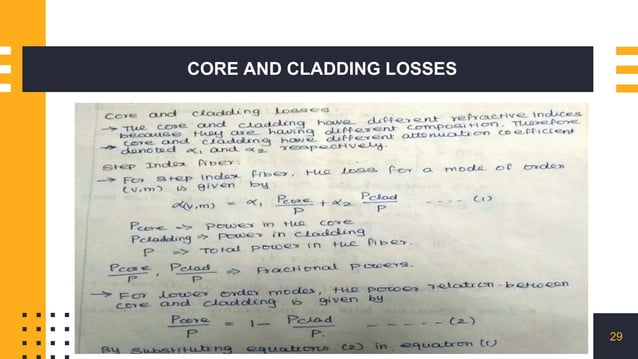 CORE AND CLADDING LOSSES
Core and cladding losses:
→ The core and cladding have different refractive indices
because they are having different composition. Therefore
→ core and cladding have different attenuation coefficient
denoted α₁ and α₂ respectively.
Step Index fiber:
→ For step index fiber, the loss for a mode of order
(v,m) is given by:
α(v,m) = α₁ Pcore/P + α₂ Pclad/P .... (1)
Pcore => power in the core
Pcladding => power in cladding
P => Total power in the fiber.
Pcore/P , Pclad/P => Fractional powers.
→ For lower order modes, the power relation between
core and cladding is given by
Pcore/P = 1 - Pclad/P. - - - - - (2)
By substituting equations (2) in equation (1)
29